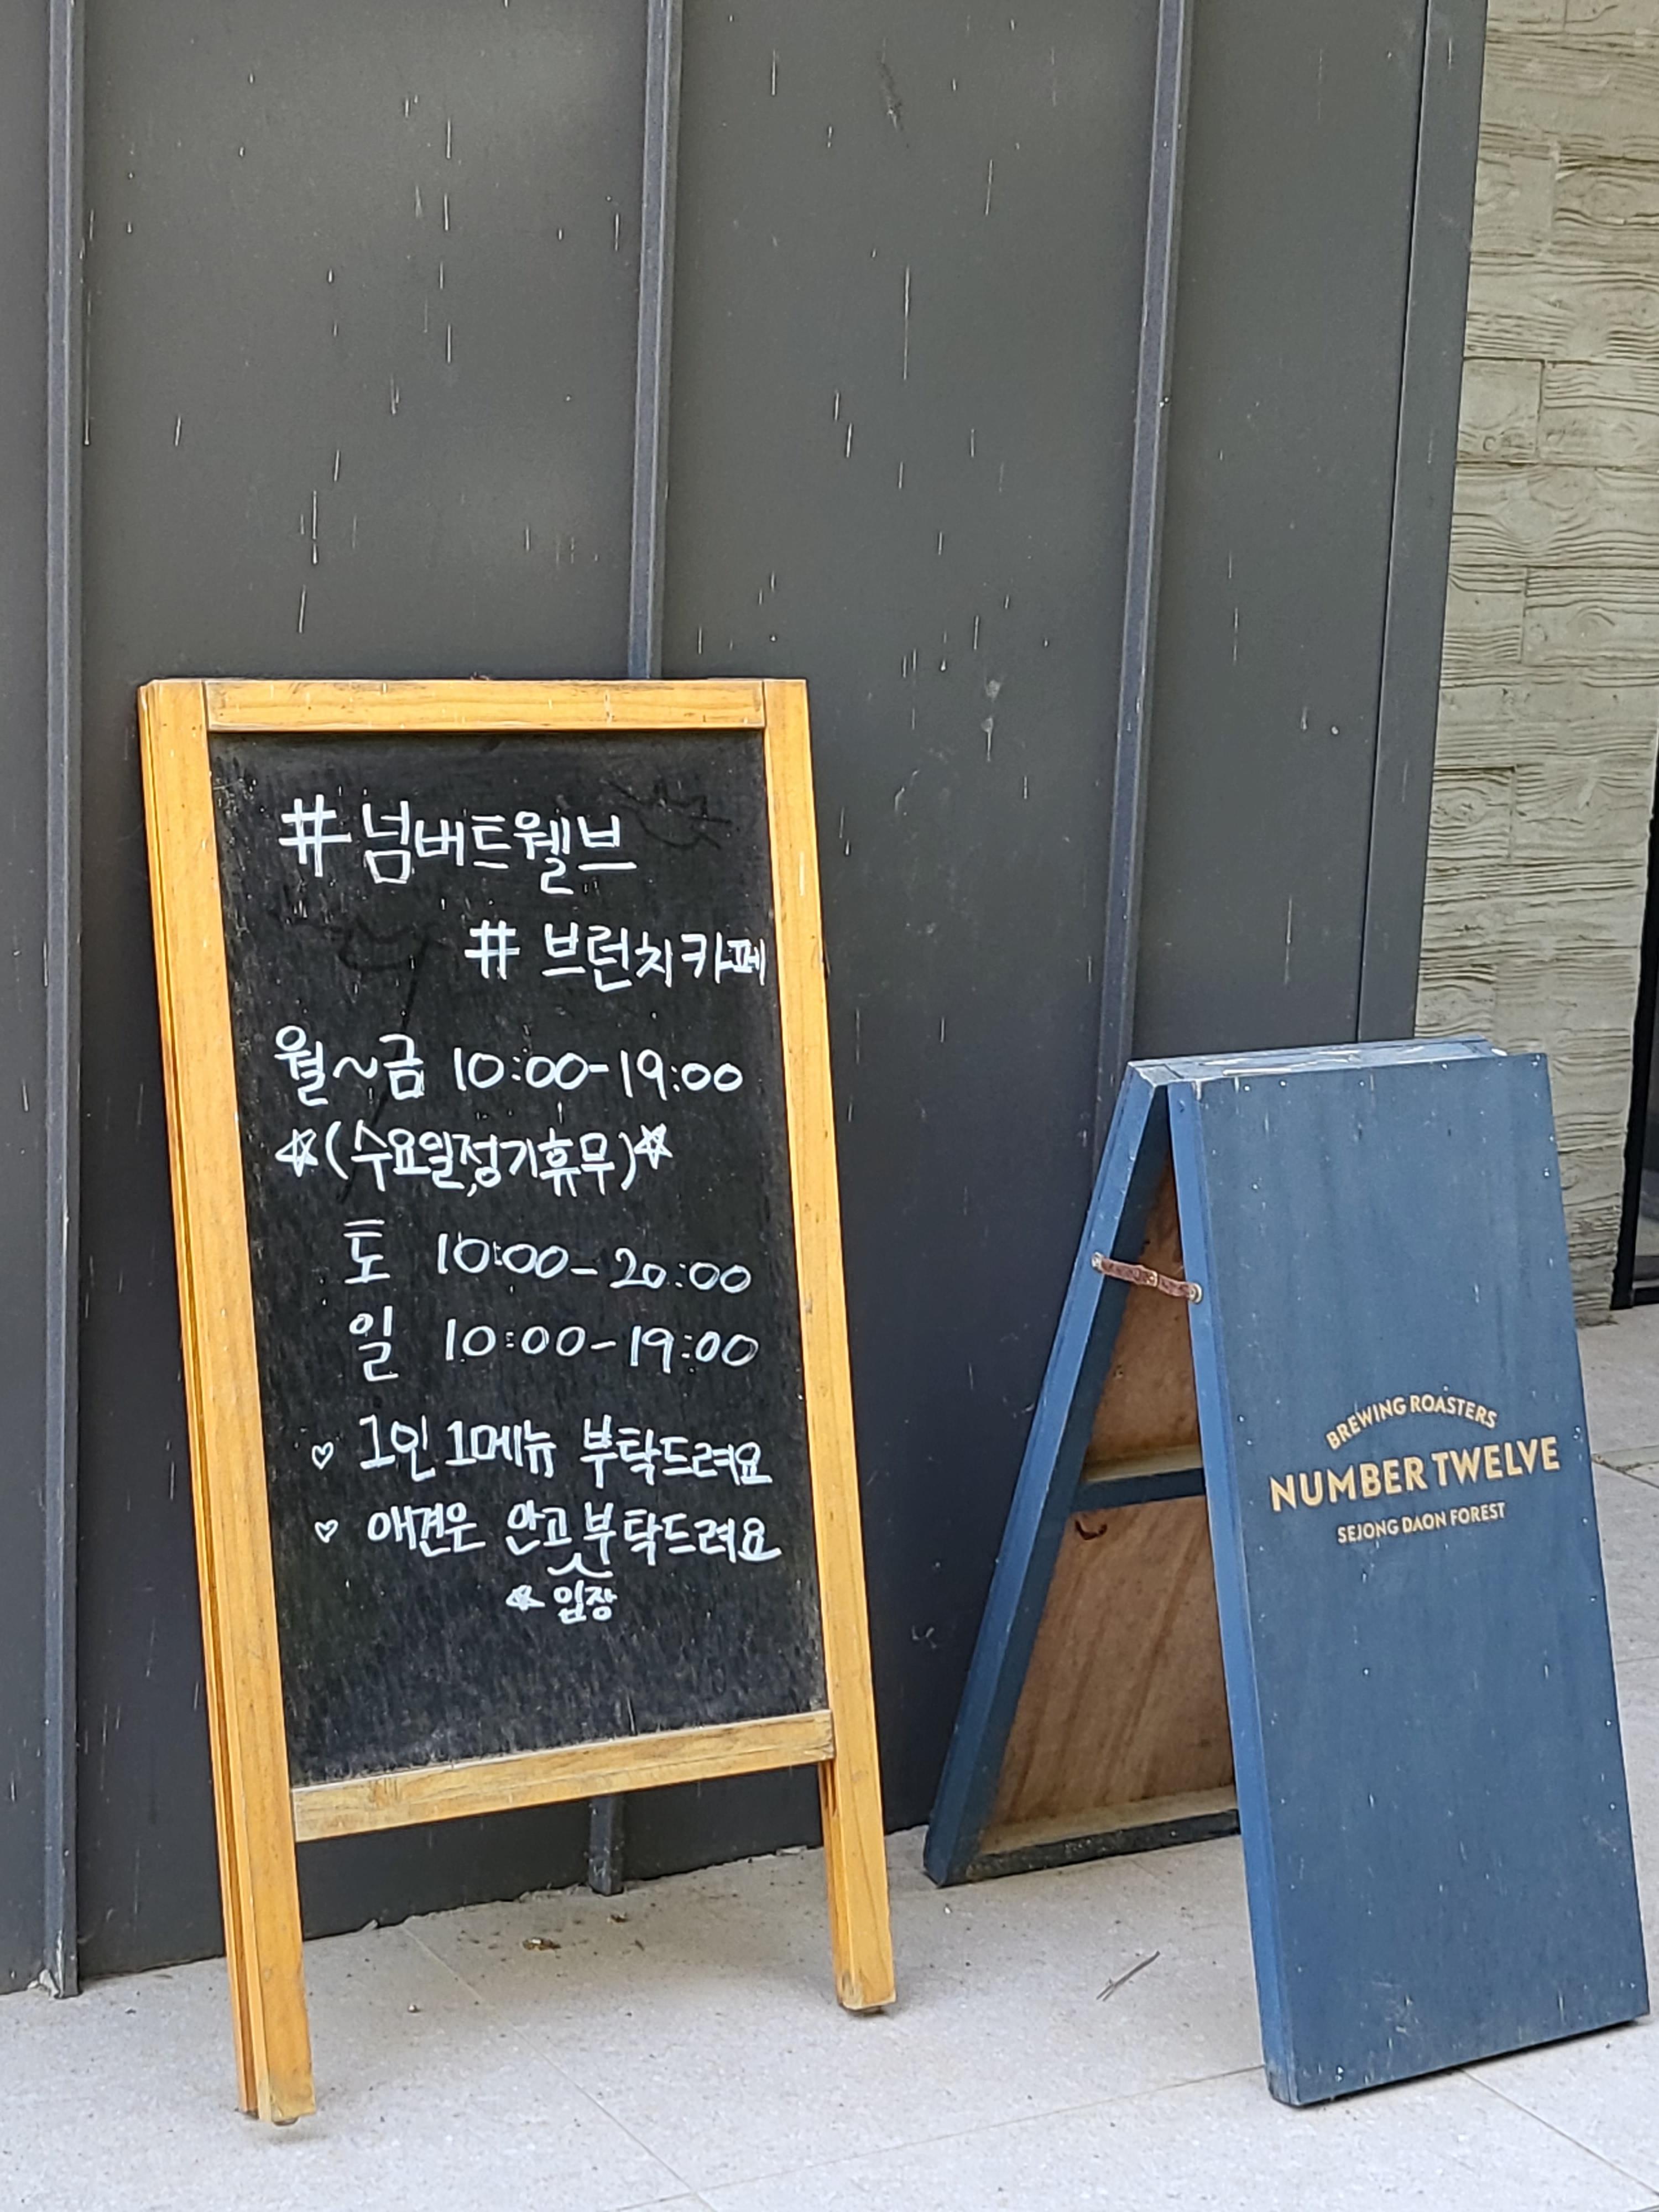 #넘버트웰브
# 브런치카페
월~금 10:00-19:00
☆(수요일정기휴무)☆
토 10:00-20:00
일 10:00-19:00
♡ 1인 1메뉴 부탁드려요
♡ 애견은 안고 부탁드려요
☆ 입장
BREWING ROASTERS
NUMBER TWELVE
SEJONG DAON FOREST